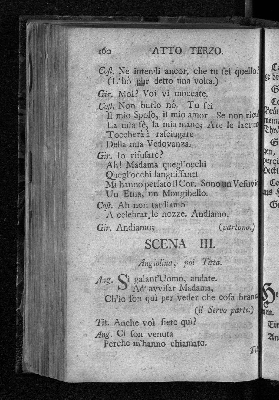 160 ATTO TERZO.
Cost. Ne intendi ancor, che tu sei quello?
(L'hò pur detto una volta.)
Gir. Moi? Voi vi moccate.
Cost. Non burlo nò. Tu sei
Il mio Sposo, il mio amor. Se non ricu
La mia fè, la mia mano; Are le lacrim
Toccherà i rasciugare
Della mia Vedovanza.
Gir. Io rifusare?
Ah! Madama quegl'occhi
Quegl'occhi languissanti
Mi hanno persato il Cor. Sono un Vesuvio
Un Etna, un Mongibello.
Cost. Ah non tardiamo
A celebrar le nozze. Andiamo.
Gir. Andiamus (partono.)
SCENA III.
Angiolina, poi Titta.
Ang. Sì galant'Uomo, andate.
Ad avvisar Madama,
Ch'io son quì per veder che cosa brama
(il Servo parte.)
Tit. Anche voi siete quì?
Ang. Ci son venuta
Perche m'hanno chiamato.